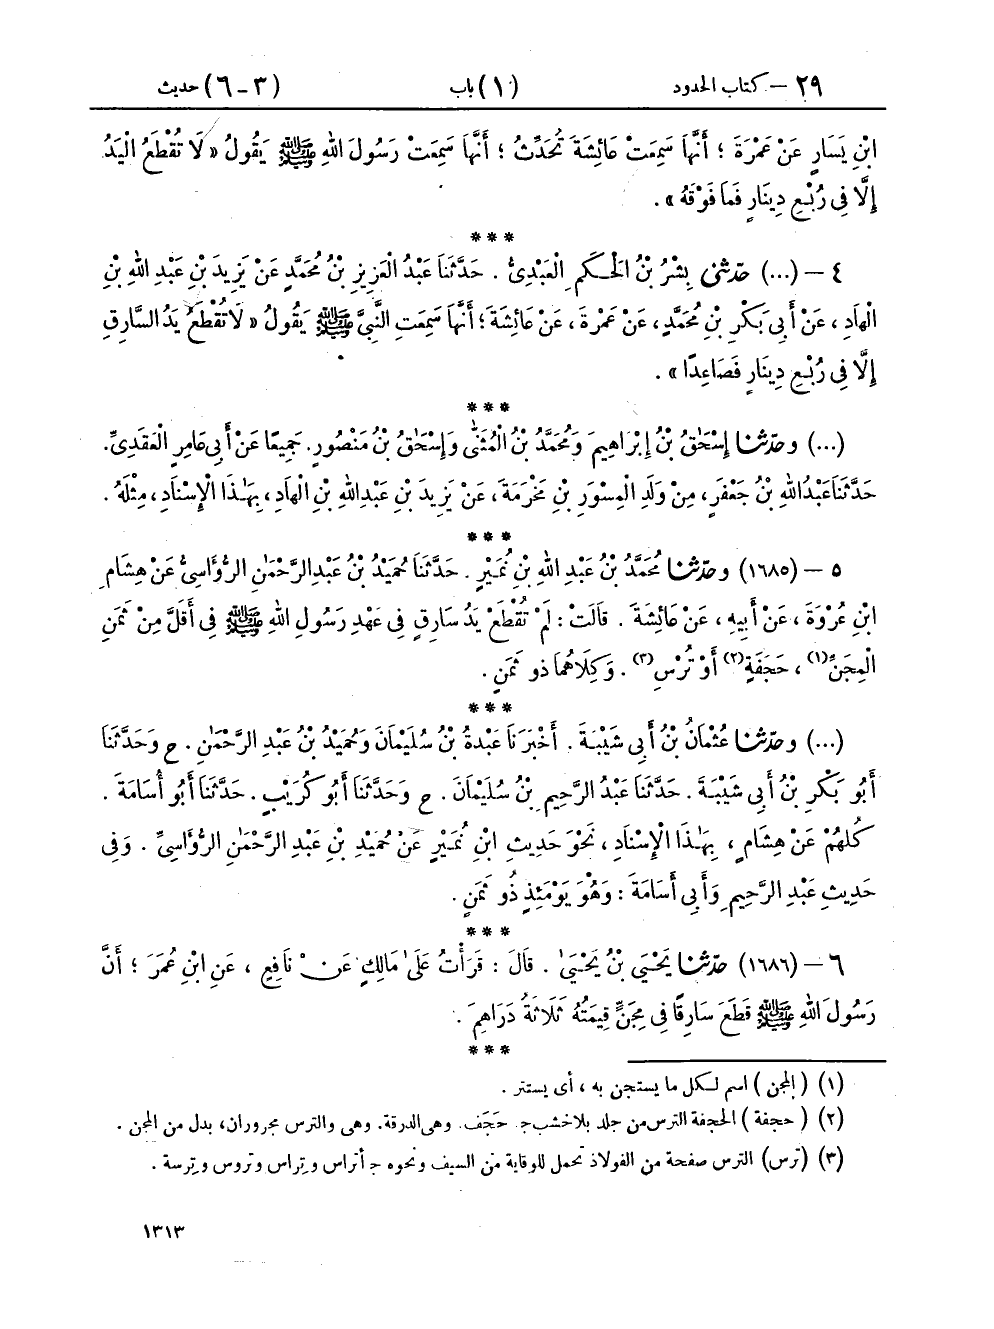 ٢٩ – كتاب الحدود (١) باب (٣ – ٦) حديث
ابْنِ يَسَارٍ عَنْ عَمْرَةَ ؛ أَنَّهَا سَمِعَتْ عَائِشَةَ تُحَدِّثُ ؛ أَنَّهَا سَمِعَتْ رَسُولَ اللهِ ﷺ يَقُولُ « لَا تُقْطَعُ الْيَدُ
إِلَّا فِي رُبْعِ دِينَارٍ فَمَا فَوْقَهُ » .
***
٤ – (...) حدّثني بِشْرُ بْنُ الْحَكَمِ الْعَبْدِيُّ . حَدَّثَنَا عَبْدُ الْعَزِيزِ بْنُ مُحَمَّدٍ عَنْ يَزِيدَ بْنِ عَبْدِ اللهِ بْنِ
الْهَادِ ، عَنْ أَبِي بَكْرِ بْنِ مُحَمَّدٍ ، عَنْ عَمْرَةَ ، عَنْ عَائِشَةَ ؛ أَنَّهَا سَمِعَتِ النَّبِيَّ ﷺ يَقُولُ « لَا تُقْطَعُ يَدُ السَّارِقِ
إِلَّا فِي رُبْعِ دِينَارٍ فَصَاعِدًا » .
***
(...) وحدّثنا إِسْحَٰقُ بْنُ إِبْرَاهِيمَ وَمُحَمَّدُ بْنُ الْمُثَنَّىٰ وَإِسْحَٰقُ بْنُ مَنْصُورٍ. جَمِيعًا عَنْ أَبِي عَامِرٍ الْعَقَدِيِّ.
حَدَّثَنَا عَبْدُ اللهِ بْنُ جَعْفَرٍ ، مِنْ وَلَدِ الْمِسْوَرِ بْنِ مَخْرَمَةَ ، عَنْ يَزِيدَ بْنِ عَبْدِ اللهِ بْنِ الْهَادِ ، بِهَٰذَا الْإِسْنَادِ ، مِثْلَهُ .
***
٥ – (١٦٨٥) وحدّثنا مُحَمَّدُ بْنُ عَبْدِ اللهِ بْنِ نُمَيْرٍ . حَدَّثَنَا حُمَيْدُ بْنُ عَبْدِ الرَّحْمَٰنِ الرُّؤَاسِيُّ عَنْ هِشَامِ
ابْنِ عُرْوَةَ ، عَنْ أَبِيهِ ، عَنْ عَائِشَةَ . قَالَتْ : لَمْ تُقْطَعْ يَدُ سَارِقٍ فِي عَهْدِ رَسُولِ اللهِ ﷺ فِي أَقَلَّ مِنْ ثَمَنِ
الْمِجَنِّ(١) ، حَجَفَةٍ(٢) أَوْ تُرْسٍ(٣) . وَكِلَاهُمَا ذُو ثَمَنٍ .
***
(...) وحدّثنا عُثْمَانُ بْنُ أَبِي شَيْبَةَ . أَخْبَرَنَا عَبْدَةُ بْنُ سُلَيْمَانَ وَحُمَيْدُ بْنُ عَبْدِ الرَّحْمَٰنِ . ح وَحَدَّثَنَا
أَبُو بَكْرِ بْنُ أَبِي شَيْبَةَ . حَدَّثَنَا عَبْدُ الرَّحِيمِ بْنُ سُلَيْمَانَ . ح وَحَدَّثَنَا أَبُو كُرَيْبٍ . حَدَّثَنَا أَبُو أُسَامَةَ .
كُلُّهُمْ عَنْ هِشَامٍ ، بِهَٰذَا الْإِسْنَادِ ، نَحْوَ حَدِيثِ ابْنِ نُمَيْرٍ عَنْ حُمَيْدِ بْنِ عَبْدِ الرَّحْمَٰنِ الرُّؤَاسِيِّ . وَفِي
حَدِيثِ عَبْدِ الرَّحِيمِ وَأَبِي أُسَامَةَ : وَهُوَ يَوْمَئِذٍ ذُو ثَمَنٍ .
***
٦ – (١٦٨٦) حدّثنا يَحْيَىٰ بْنُ يَحْيَىٰ . قَالَ : قَرَأْتُ عَلَىٰ مَالِكٍ عَنْ نَافِعٍ ، عَنِ ابْنِ عُمَرَ ؛ أَنَّ
رَسُولَ اللهِ ﷺ قَطَعَ سَارِقًا فِي مِجَنٍّ قِيمَتُهُ ثَلَاثَةُ دَرَاهِمَ .
***
(١) (المجن) اسم لكل ما يستجن به ، أى يستتر .
(٢) (حجفة) الحجفة الترس من جلد بلا خشب ج حَجَف. وهى الدرقة. وهى والترس مجروران، بدل من المجن .
(٣) (ترس) الترس صفحة من الفولاذ تحمل للوقاية من السيف ونحوه ج أتراس وتِراس وتروس وتِرسة .
١٣١٣